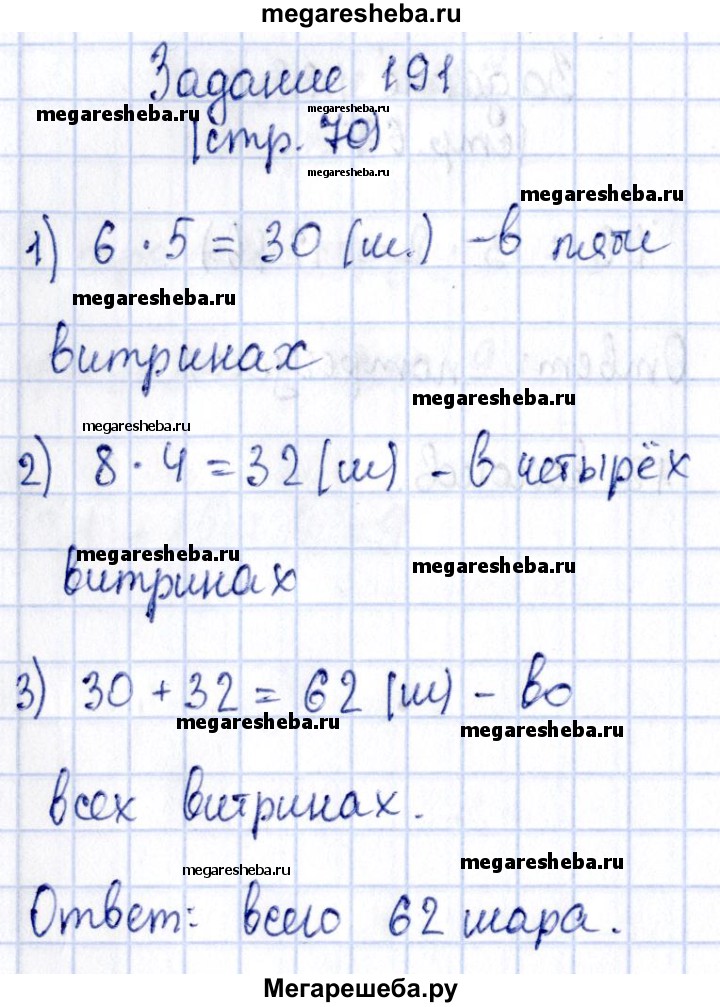 megaresheba.ru
Задание 191
megaresheba.ru megaresheba.ru
(стр. 70)
megaresheba.ru
megaresheba.ru
1) 6 · 5 = 30 (ш.) - в пяти
megaresheba.ru
витринах
megaresheba.ru
megaresheba.ru
2) 8 · 4 = 32 (ш) - в четырёх
megaresheba.ru megaresheba.ru
витринах
3) 30 + 32 = 62 (ш) - во
megaresheba.ru megaresheba.ru
всех витринах.
megaresheba.ru megaresheba.ru
Ответ: всего 62 шара.
Мегарешеба.ру